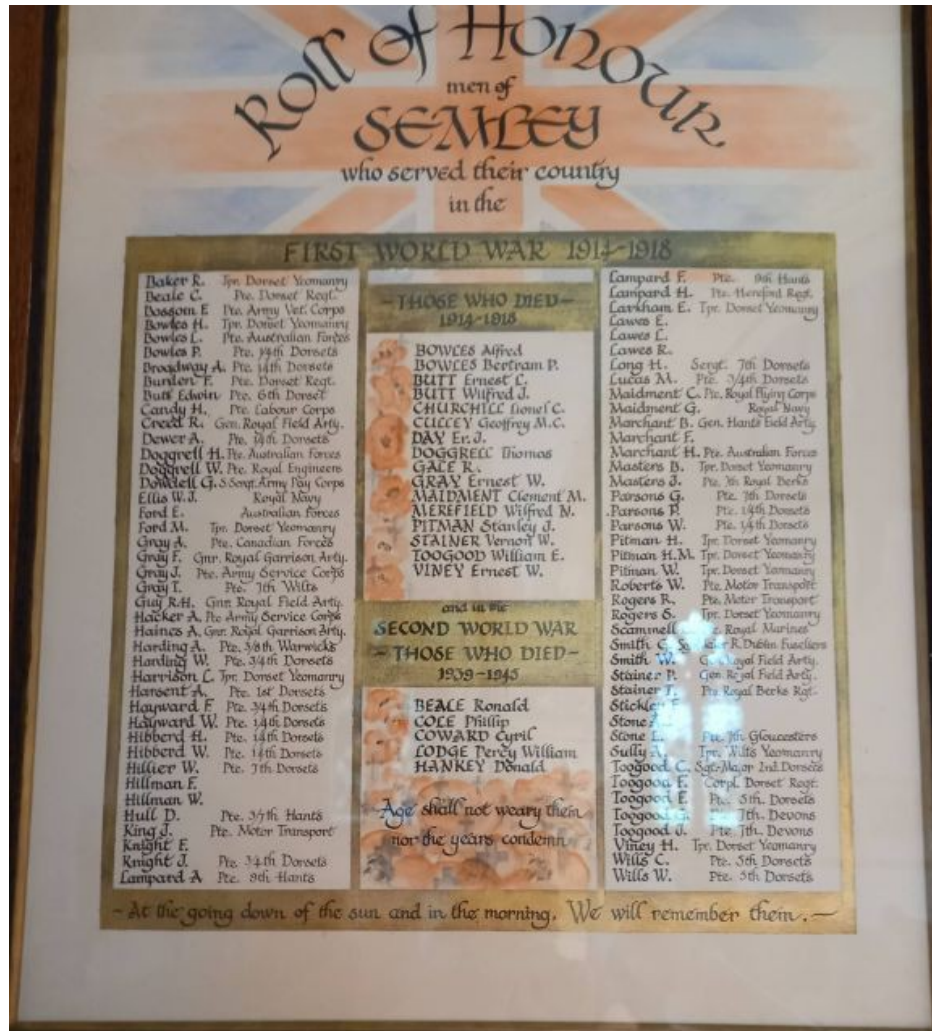 Roll of Honour
men of
SEMLEY
who served their country
in the
FIRST WORLD WAR 1914-1918
Baker R. Tpr. Dorset Yeomanry
Beale C. Pte. Dorset Regt.
Bossom E Pte. Army Vet. Corps
Bowles H. Tpr. Dorset Yeomanry
Bowles L. Pte. Australian Forces
Bowles P. Pte. 1/4th Dorsets
Broadway A. Pte. 1/4th Dorsets
Burden F. Pte. Dorset Regt.
Butt Edwin Pte. 6th Dorset
Candy H. Pte. Labour Corps
Creed R. Gnr. Royal Field Arty.
Dewer A. Pte. 1/4th Dorsets
Doggrell H. Pte. Australian Forces
Doggrell W. Pte. Royal Engineers
Dowdell G. S.Sergt. Army Pay Corps
Ellis W.J. Royal Navy
Ford E. Australian Forces
Ford M. Tpr. Dorset Yeomanry
Gray A. Pte. Canadian Forces
Gray F. Gnr. Royal Garrison Arty.
Gray J. Pte. Army Service Corps
Gray T. Pte. 7th Wilts
Guy R.H. Gnr. Royal Field Arty.
Hacker A. Pte Army Service Corps
Haines A. Gnr. Royal Garrison Arty.
Harding A. Pte. 3/8th Warwicks
Harding W. Pte. 3/4th Dorsets
Harrison L. Tpr. Dorset Yeomanry
Hansent A. Pte. 1st Dorsets
Hayward F. Pte. 3/4th Dorsets
Hayward W. Pte. 1/4th Dorsets
Hibberd H. Pte. 1/4th Dorsets
Hibberd W. Pte. 1/4th Dorsets
Hillier W. Pte. 7th Dorsets
Hillman F.
Hillman W.
Hull D. Pte. 3/7th Hants
King J. Pte. Motor Transport
Knight F.
Knight J. Pte. 3/4th Dorsets
Lampard A Pte. 9th Hants
-THOSE WHO DIED-
1914-1918
BOWLES Alfred
BOWLES Bertram P.
BUTT Ernest C.
BUTT Wilfred J.
CHURCHILL Lionel C.
CULLEY Geoffrey M.C.
DAY Er. J.
DOGGRELL Thomas
GALE R.
GRAY Ernest W.
MAIDMENT Clement M.
MEREFIELD Wilfred N.
PITMAN Stanley J.
STAINER Vernon W.
TOOGOOD William E.
VINEY Ernest W.
and in the
SECOND WORLD WAR
-THOSE WHO DIED-
1939-1945
BEALE Ronald
COLE Phillip
COWARD Cyril
LODGE Percy William
HANKEY Donald
Age shall not weary them
nor the years condemn
Lampard F. Pte. 9th Hants
Lampard H. Pte. Hereford Regt.
Larkham E. Tpr. Dorset Yeomanry
Lawes E.
Lawes L.
Lawes R.
Long H. Sergt. 7th Dorsets
Lucas M. Pte. 3/4th Dorsets
Maidment C. Pte. Royal Flying Corps
Maidment G. Royal Navy
Marchant B. Gen. Hants Field Arty.
Marchant F.
Marchant H. Pte. Australian Forces
Masters B. Tpr. Dorset Yeomanry
Masters J. Pte. 7th Royal Berks
Parsons G. Pte. 7th Dorsets
Parsons P. Pte. 1/4th Dorsets
Parsons W. Pte. 1/4th Dorsets
Pitman H. Tpr. Dorset Yeomanry
Pitman H.M. Tpr. Dorset Yeomanry
Pitman W. Tpr. Dorset Yeomanry
Roberts W. Pte. Motor Transport
Rogers R. Pte. Motor Transport
Rogers S. Tpr. Dorset Yeomanry
Scammell Royal Marines
Smith R. Dublin Fuseliers
Smith W. Royal Field Arty.
Stainer P. Gen. Royal Field Arty.
Stainer T. Pte. Royal Berks Rgt.
Stone
Stone Pte. 7th Gloucesters
Sully A. Tpr. Wilts Yeomanry
Toogood C. Sgt.-Major 2nd. Dorsets
Toogood E. Corpl. Dorset Regt.
Toogood F. Pte. 5th. Dorsets
Toogood 7th. Devons
Toogood J. Pte. 7th. Devons
Viney H. Tpr. Dorset Yeomanry
Wills C. Pte. 5th Dorsets
Wills W. Pte. 5th Dorsets
- At the going down of the sun and in the morning, We will remember them. -